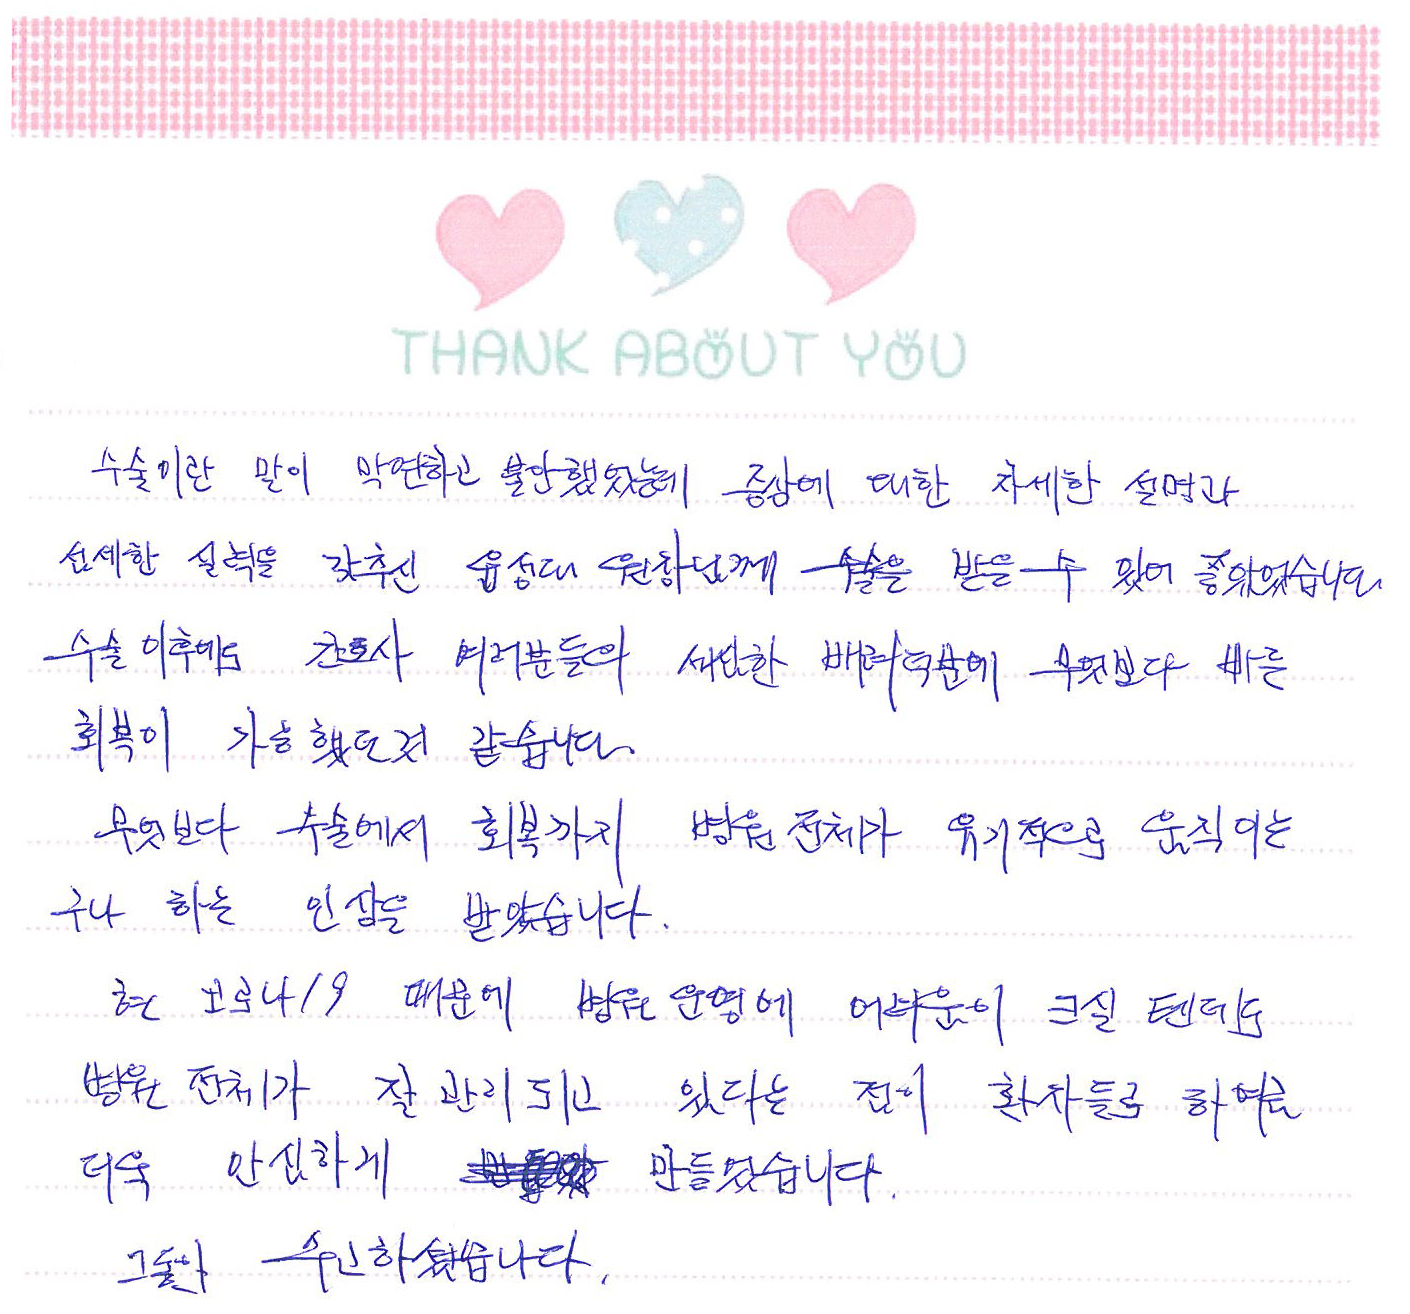 THANK ABOUT YOU
수술이란 말이 막연하고 불안했었는데 증상에 대한 자세한 설명과
섬세한 실력을 갖추신 원장님께 수술을 받을 수 있어 좋았었습니다.
수술 이후에도 간호사 여러분들의 세심한 배려덕분에 무엇보다 빠른
회복이 가능했던거 같습니다.
무엇보다 수술에서 회복까지 병원 전체가 유기적으로 움직이는
구나 하는 인상을 받았습니다.
현 코로나19 때문에 병원 운영에 어려움이 크실 텐데도
병원 전체가 잘 관리되고 있다는 점이 환자들로 하여금
더욱 안심하게 만들었습니다.
그동안 수고하셨습니다.